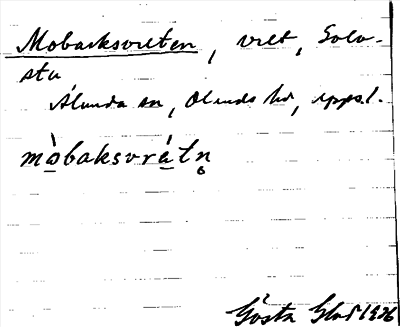 Mobacksvreten, vret, Solv-
sta
Alunda sn, Olands hd, Upps.l.
mòbaksvrátn̥
Gösta